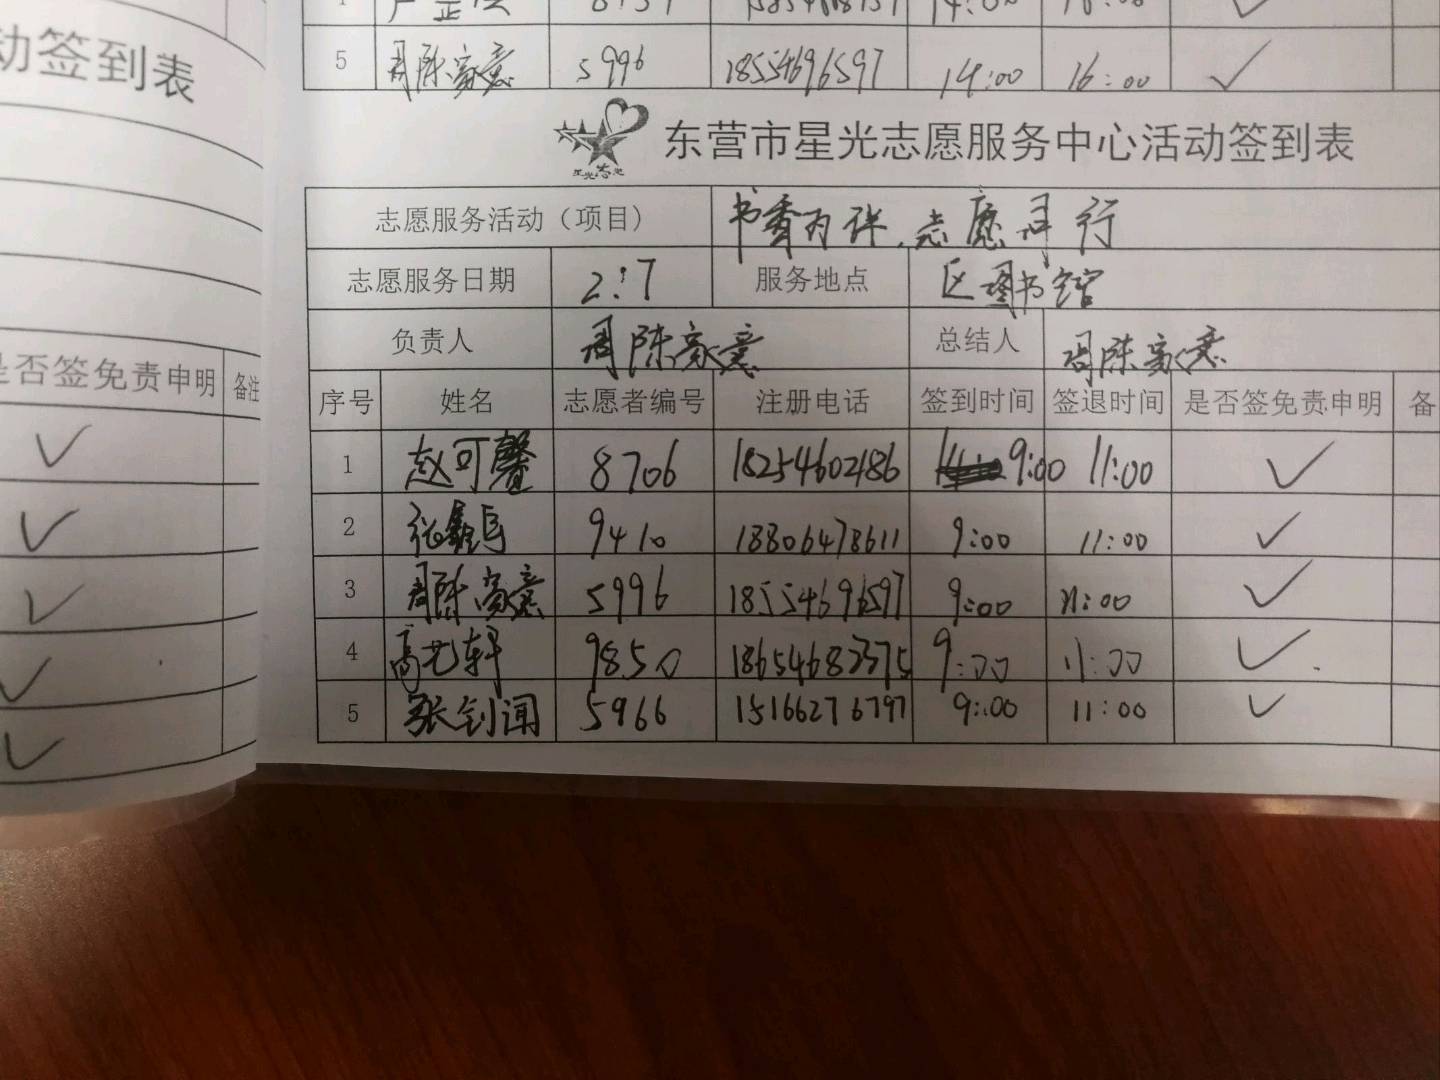 动签到表
是否签免责申明 备注
5 周陈豪意 5996 18554696597 14:00 16:00 ✓
东营市星光志愿服务中心活动签到表
志愿服务活动（项目） 书香为伴,志愿同行
志愿服务日期 2:7 服务地点 区图书馆
负责人 周陈豪意 总结人 周陈豪意
序号 姓名 志愿者编号 注册电话 签到时间 签退时间 是否签免责申明 备
1 赵可馨 8706 18254602186 9:00 11:00 ✓
2 9410 18806478611 9:00 11:00 ✓
3 周陈豪意 5996 18554696597 9:00 11:00 ✓
4 高艺轩 9850 18654682375 9:00 11:00 ✓
5 张钊闻 5966 15166276797 9:00 11:00 ✓